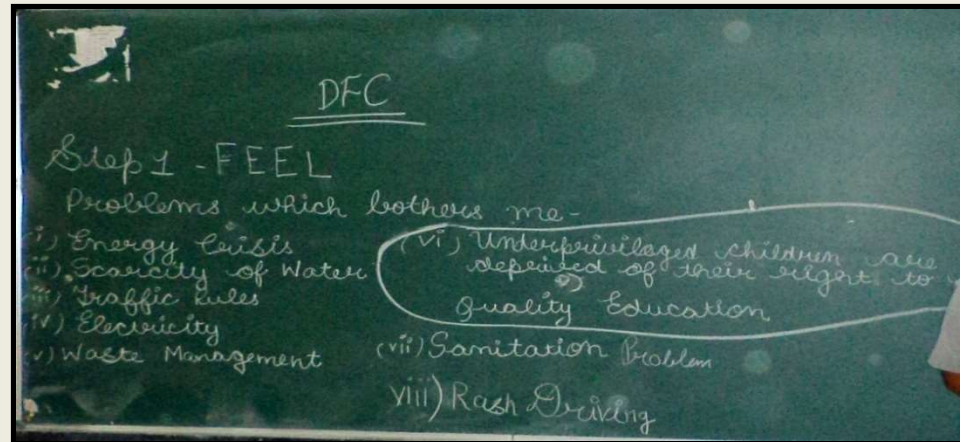 DFC
Step 1 - FEEL
Problems which bothers me-
i) Energy Crisis
ii) Scarcity of Water
iii) Traffic Rules
iv) Electricity
v) Waste Management
(vi) Underprivilaged children are
deprived of their right to
Quality Education.
(vii) Sanitation Problem
viii) Rash Driving